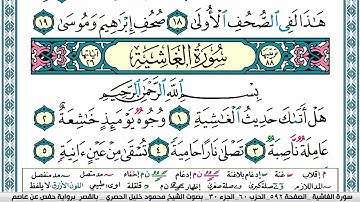 هَٰذَا لَفِى ٱلصُّحُفِ ٱلْأُولَىٰ ١٨ صُحُفِ إِبْرَٰهِيمَ وَمُوسَىٰ ١٩
سُورَةُ ٱلْغَاشِيَةِ
٨٨
٢٦
بِسْمِ ٱللَّهِ ٱلرَّحْمَٰنِ ٱلرَّحِيمِ
هَلْ أَتَىٰكَ حَدِيثُ ٱلْغَٰشِيَةِ ١ وُجُوهٌ يَوْمَئِذٍ خَٰشِعَةٌ ٢
عَامِلَةٌ نَّاصِبَةٌ ٣ تَصْلَىٰ نَارًا حَامِيَةً ٤ تُسْقَىٰ مِنْ عَيْنٍ ءَانِيَةٍ ٥
سورة الغاشية الصفحة ٥٩٢ الحزب ٦٠ الجزء ٣٠ بصوت الشيخ محمود خليل الحصري بالقصر برواية حفص عن عاصم